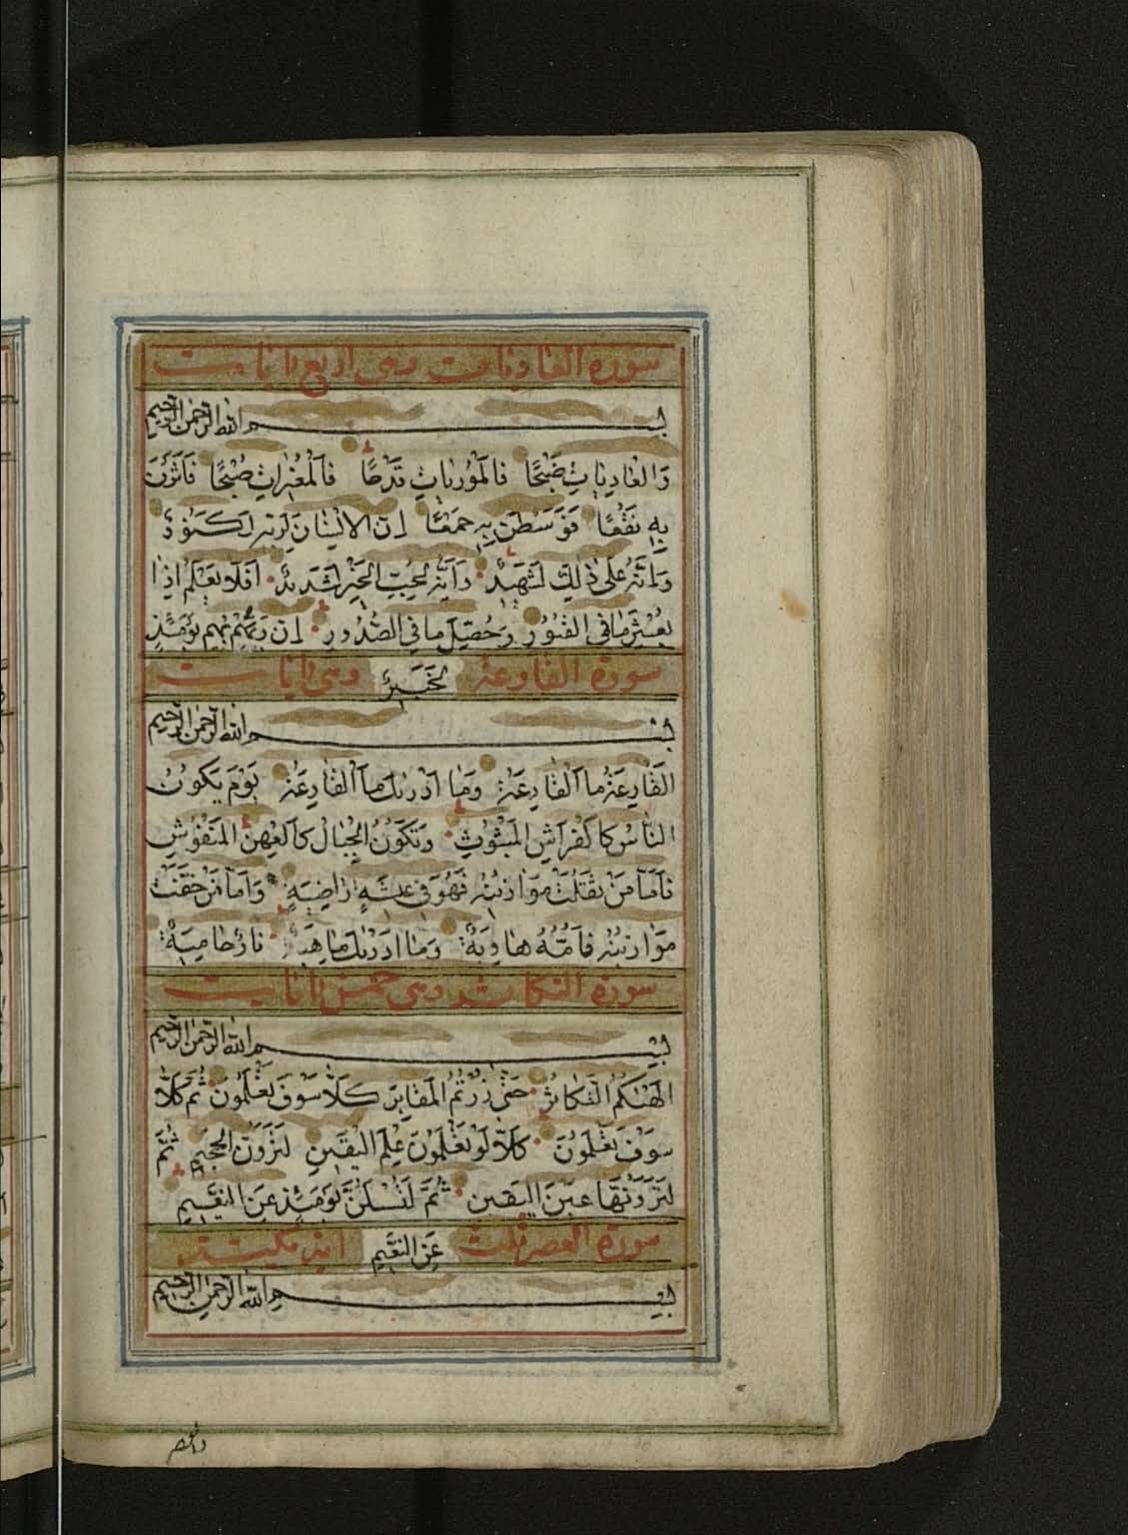 سورة العاديات وهي اربع ايات
بسم الله الرحمن الرحيم
وَالْعَادِيَاتِ ضَبْحًا فَالْمُورِيَاتِ قَدْحًا فَالْمُغِيرَاتِ صُبْحًا فَأَثَرْنَ
بِهِ نَقْعًا فَوَسَطْنَ بِهِ جَمْعًا إِنَّ الْإِنْسَانَ لِرَبِّهِ لَكَنُودٌ
وَإِنَّهُ عَلَى ذَٰلِكَ لَشَهِيدٌ وَإِنَّهُ لِحُبِّ الْخَيْرِ لَشَدِيدٌ أَفَلَا يَعْلَمُ إِذَا
بُعْثِرَ مَا فِي الْقُبُورِ وَحُصِّلَ مَا فِي الصُّدُورِ إِنَّ رَبَّهُمْ بِهِمْ يَوْمَئِذٍ
سورة القارعة لَخَبِيرٌ وهي ايات
بسم الله الرحمن الرحيم
الْقَارِعَةُ مَا الْقَارِعَةُ وَمَا أَدْرٰىكَ مَا الْقَارِعَةُ يَوْمَ يَكُونُ
النَّاسُ كَالْفَرَاشِ الْمَبْثُوثِ وَتَكُونُ الْجِبَالُ كَالْعِهْنِ الْمَنْفُوشِ
فَأَمَّا مَنْ ثَقُلَتْ مَوَازِينُهُ فَهُوَ فِي عِيشَةٍ رَاضِيَةٍ وَأَمَّا مَنْ خَفَّتْ
مَوَازِينُهُ فَأُمُّهُ هَاوِيَةٌ وَمَا أَدْرٰىكَ مَا هِيَهْ نَارٌ حَامِيَةٌ
سورة التكاثر وهي خمس ايات
بسم الله الرحمن الرحيم
أَلْهٰىكُمُ التَّكَاثُرُ حَتَّى زُرْتُمُ الْمَقَابِرَ كَلَّا سَوْفَ تَعْلَمُونَ ثُمَّ كَلَّا
سَوْفَ تَعْلَمُونَ كَلَّا لَوْ تَعْلَمُونَ عِلْمَ الْيَقِينِ لَتَرَوُنَّ الْجَحِيمَ ثُمَّ
لَتَرَوُنَّهَا عَيْنَ الْيَقِينِ ثُمَّ لَتُسْئَلُنَّ يَوْمَئِذٍ عَنِ النَّعِيمِ
سورة العصر ثلث عَنِ النَّعِيمِ ايه مكيت
بسم الله الرحمن الرحيم
والعصر